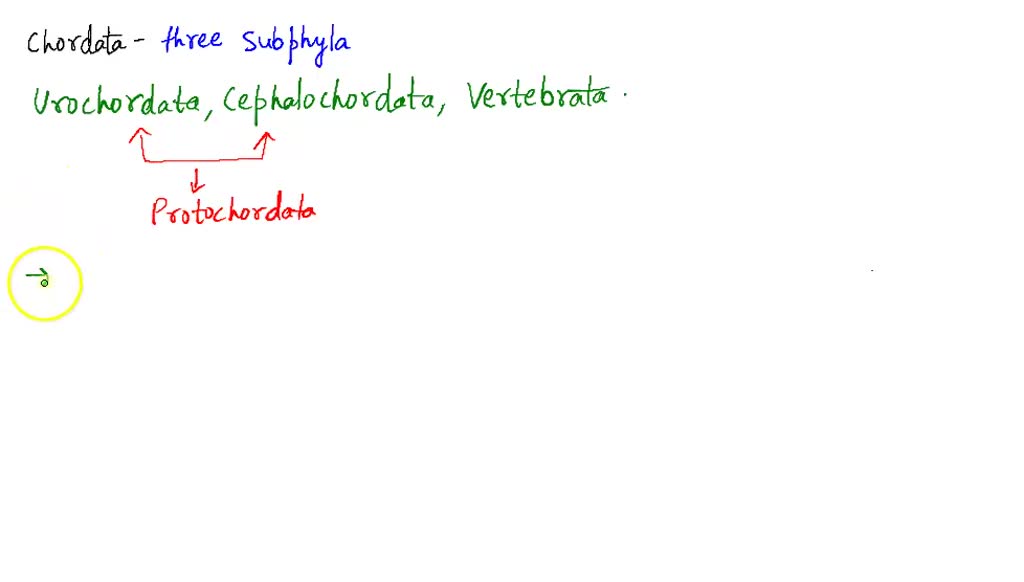 Chordata - three subphyla
Urochordata, Cephalochordata, Vertebrata.
Protochordata
→